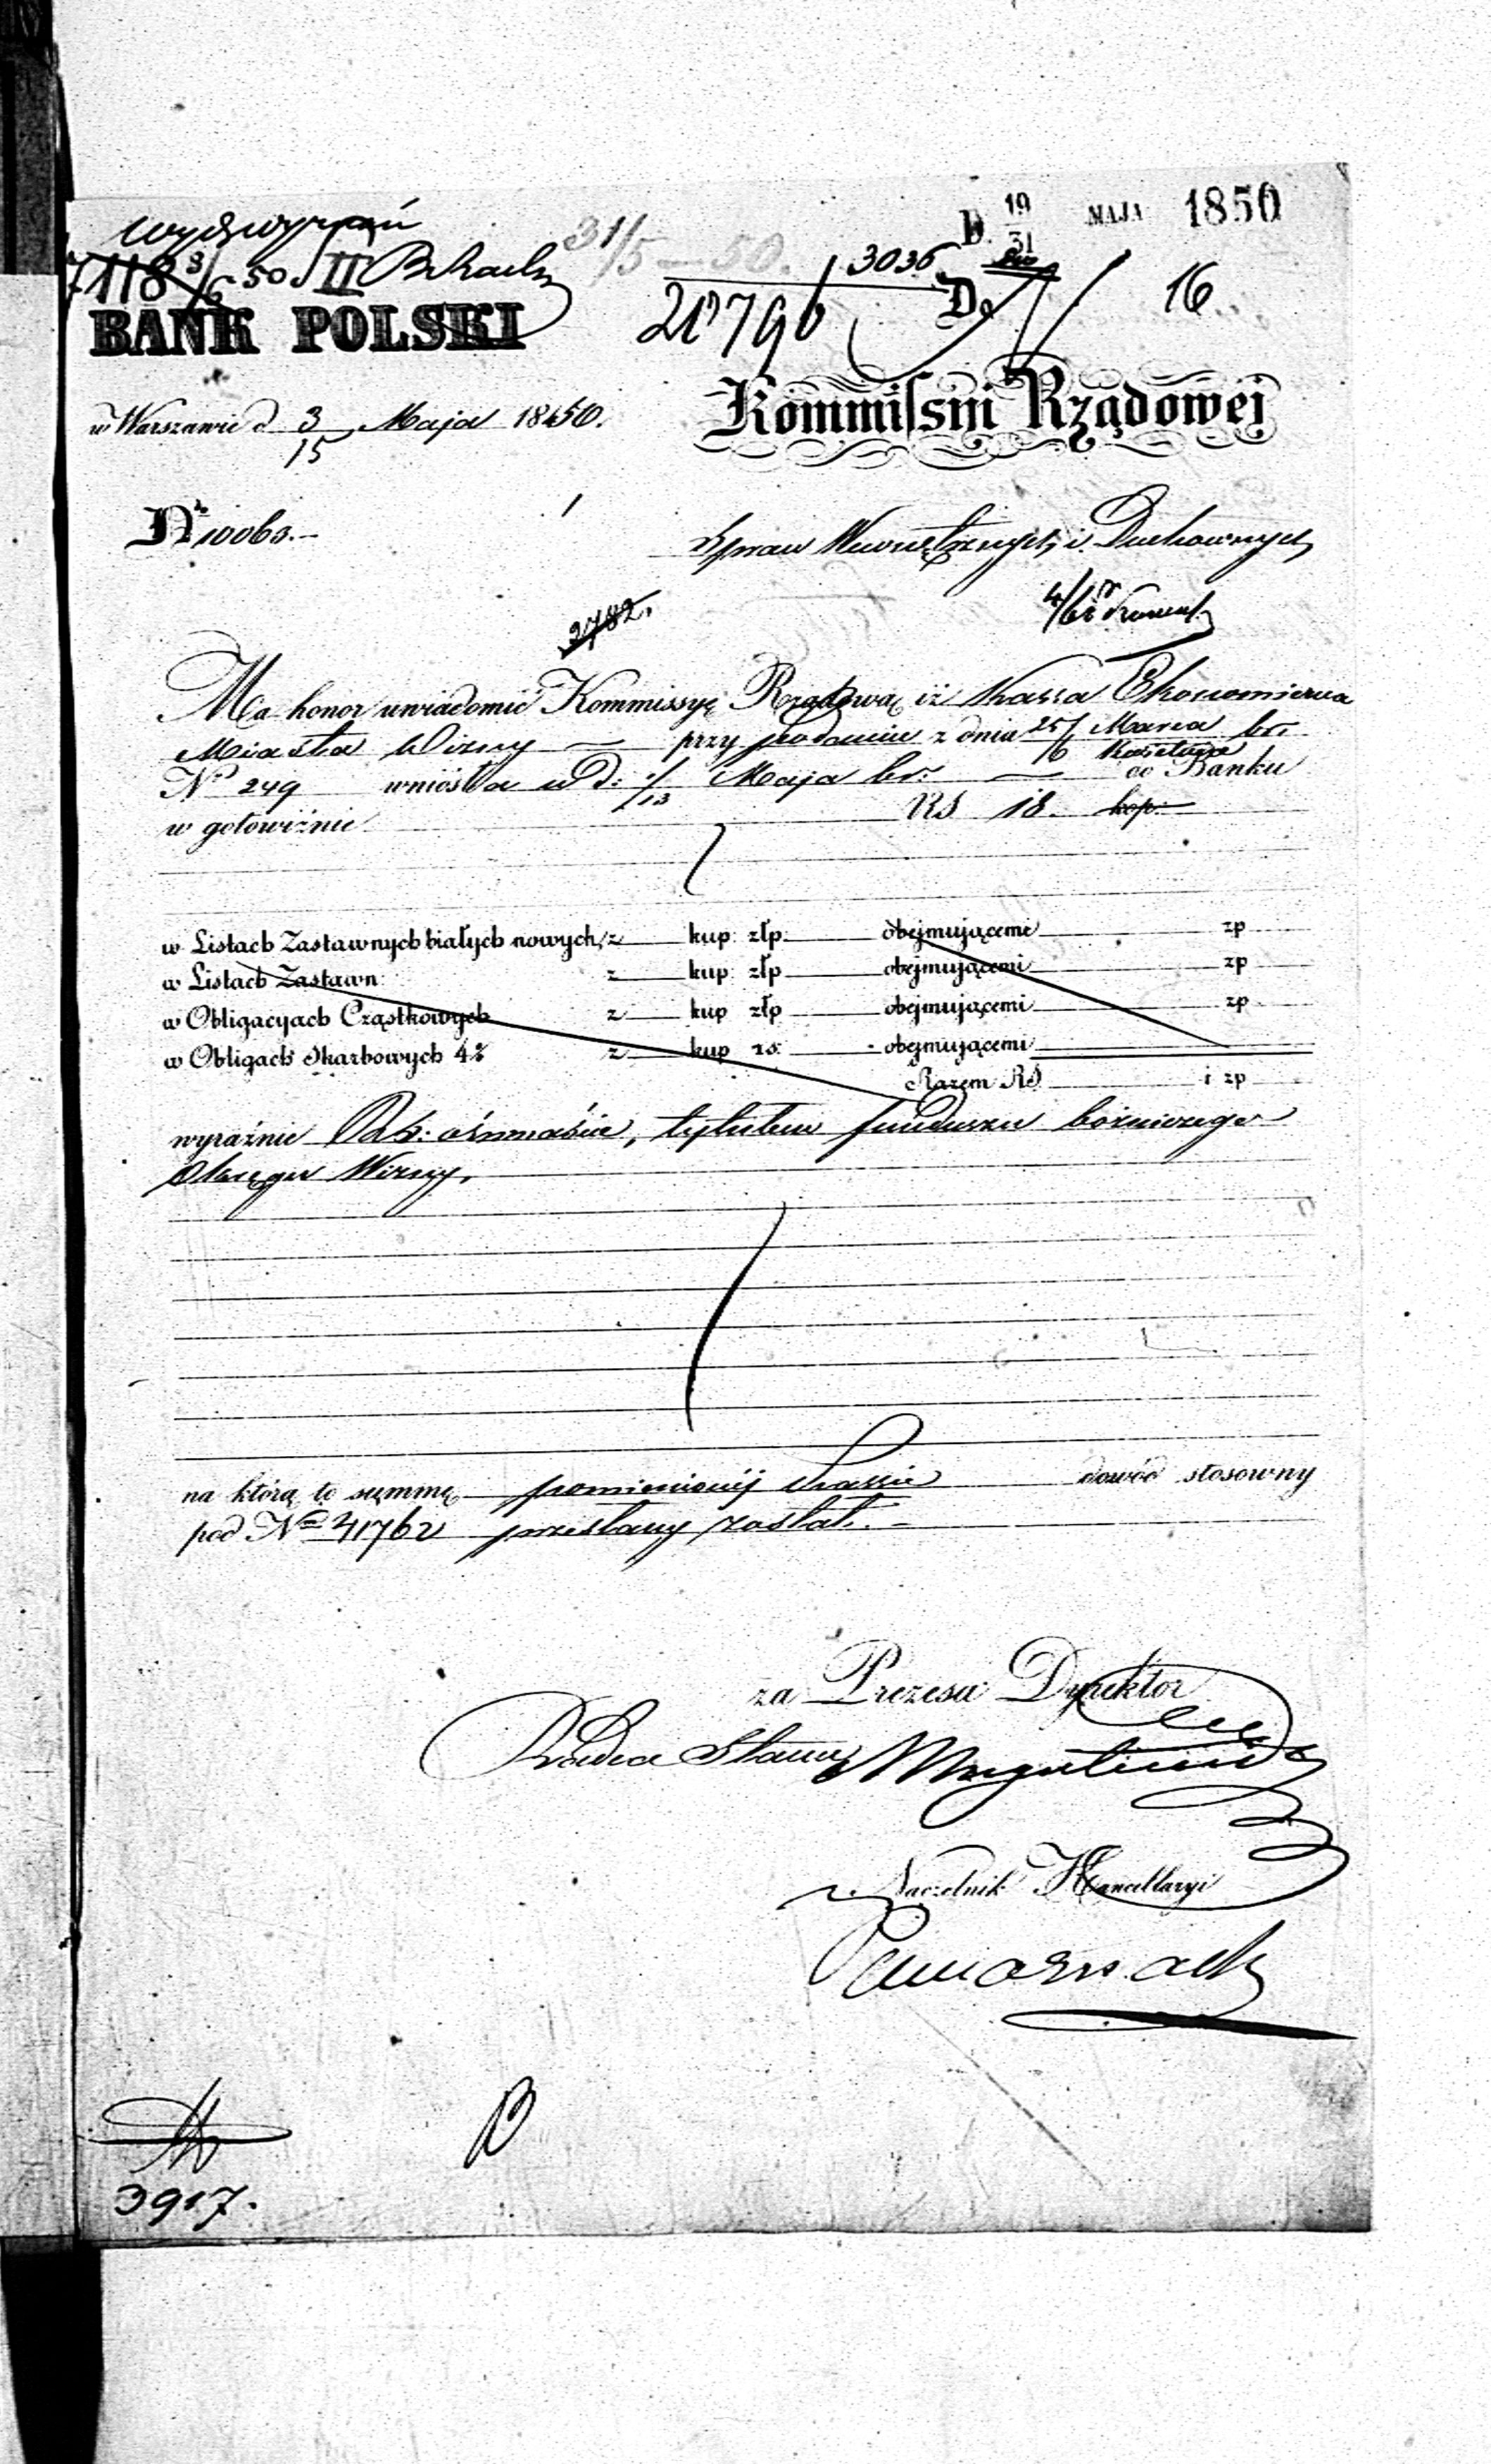 D. 19/31 MAJA 1850
7118 3/6 50 II
31/5 — 50.
3036
20796
16
BANK POLSKI
Do
w Warszawie d 3/15 Maja 1850.
Kommissyi Rządowej
Nr 10060.
Spraw Wewnętrznych i Duchownych
2782.
Ma honor uwiadomić Kommissyę Rządową iż Kassa Ekonomiczna
Miasta Wizny — przy podaniu z dnia 25/6 Marca Kwietnia br.
No 249 wniosła w d. 1/13 Maja br. — do Banku
w gotowiźnie RS 18. kop.
w Listach Zastawnych białych nowych, z kup: złp. obejmującemi zp
w Listach Zastawn: z kup: złp obejmującemi zp
w Obligacyach Cząstkowych z kup złp obejmującemi zp
w Obligach Skarbowych 4% z kup rs: obejmującemi
Razem RS i zp
wyraźnie Rub: ośmnaście, tytułem funduszu bóżniczego
Okręgu Wizny.
na którą to summę pomienionéj Kassie dowód stosowny
pod Nrm 41762 przesłany został. -
za Prezesa Dyrektor
Radca Stanu
Naczelnik Kancellaryi
3917.